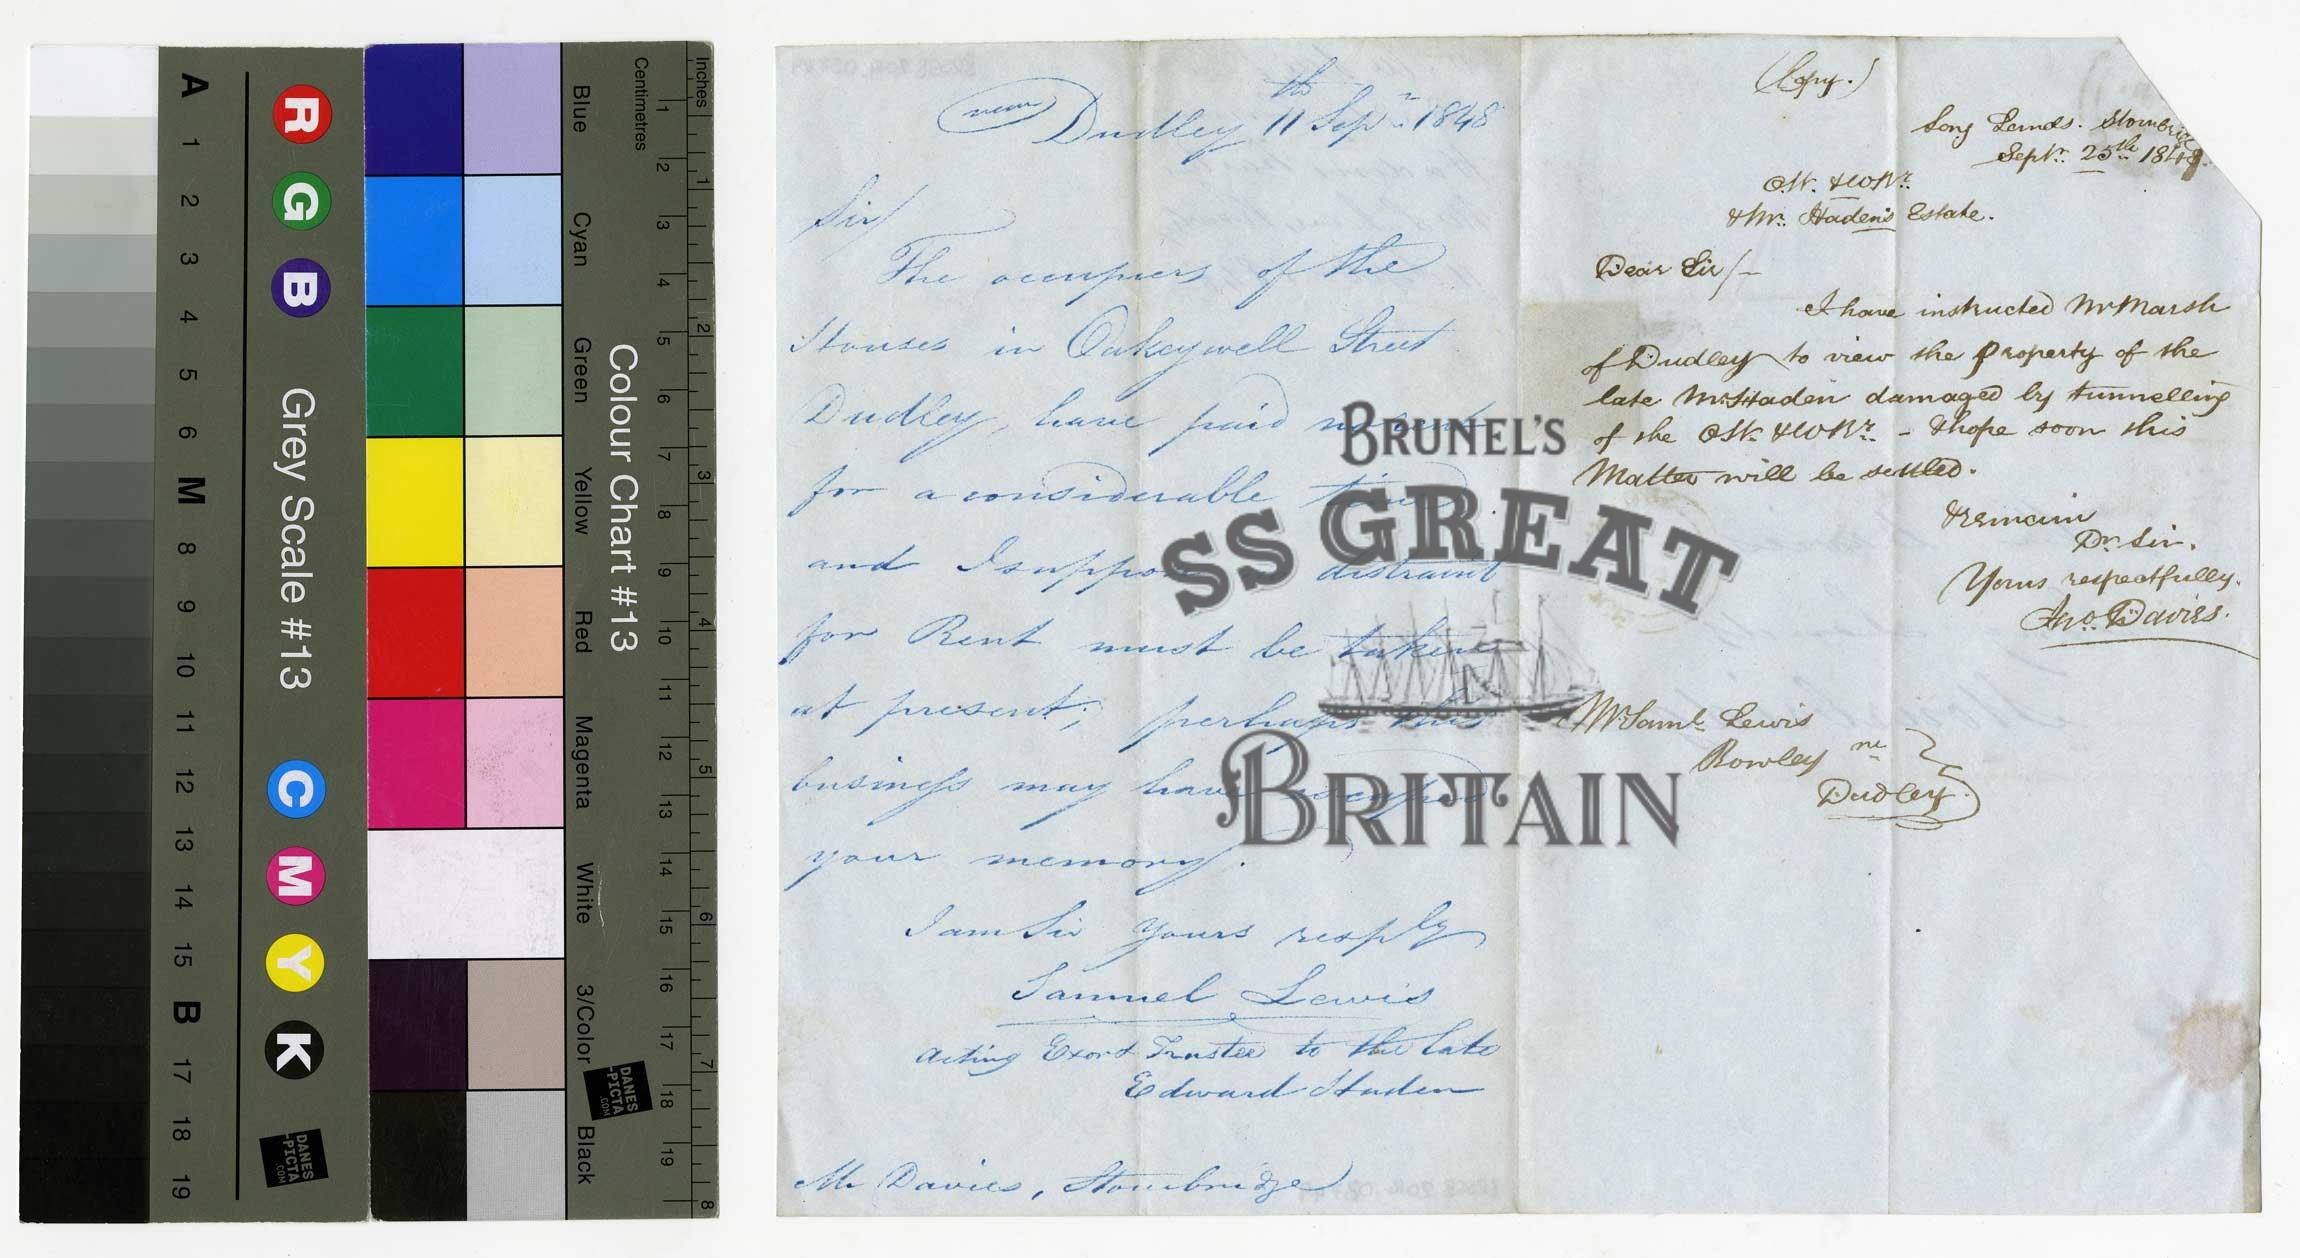 A 1 2 3 4 5 6 M 8 9 10 11 12 13 14 15 B 17 18 19
R G B
Grey Scale #13
C M Y K
DANES
-PICTA
.COM
Blue
Cyan
Green
Yellow
Red
Magenta
White
3/Color
Black
Colour Chart #13
Centimetres
1 2 3 4 5 6 7 8 9 10 11 12 13 14 15 16 17 18 19
Inches
1 2 3 4 5 6 7 8
DANES
-PICTA
.COM
near Dudley 11th Sepr 1848
Sir/
The occupiers of the
Houses in Oakeywell Street
Dudley, have paid no rent
for a considerable time
and I suppose distraint
for Rent must be taken
at present; perhaps this
business may have escaped
your memory.
I am Sir Yours resply
Samuel Lewis
acting Exor & Trustee to the late
Edward Haden
Mr Davies, Stourbridge
(Copy.)
Song Lands. Stourbridge
Septr. 25th 1848.
O.W. & WWr.
& Mr. Haden's Estate.
Dear Sir/-
I have instructed Mr Marsh
of Dudley to view the property of the
late Mr Haden damaged by tunnelling
of the OW & WWr. - & hope soon this
Matter will be settled.
I remain
Dr. Sir.
Yours respectfully.
Jno. Davies.
Mr Saml Lewis
Rowley nr
Dudley.
BRUNEL'S
SS GREAT
BRITAIN